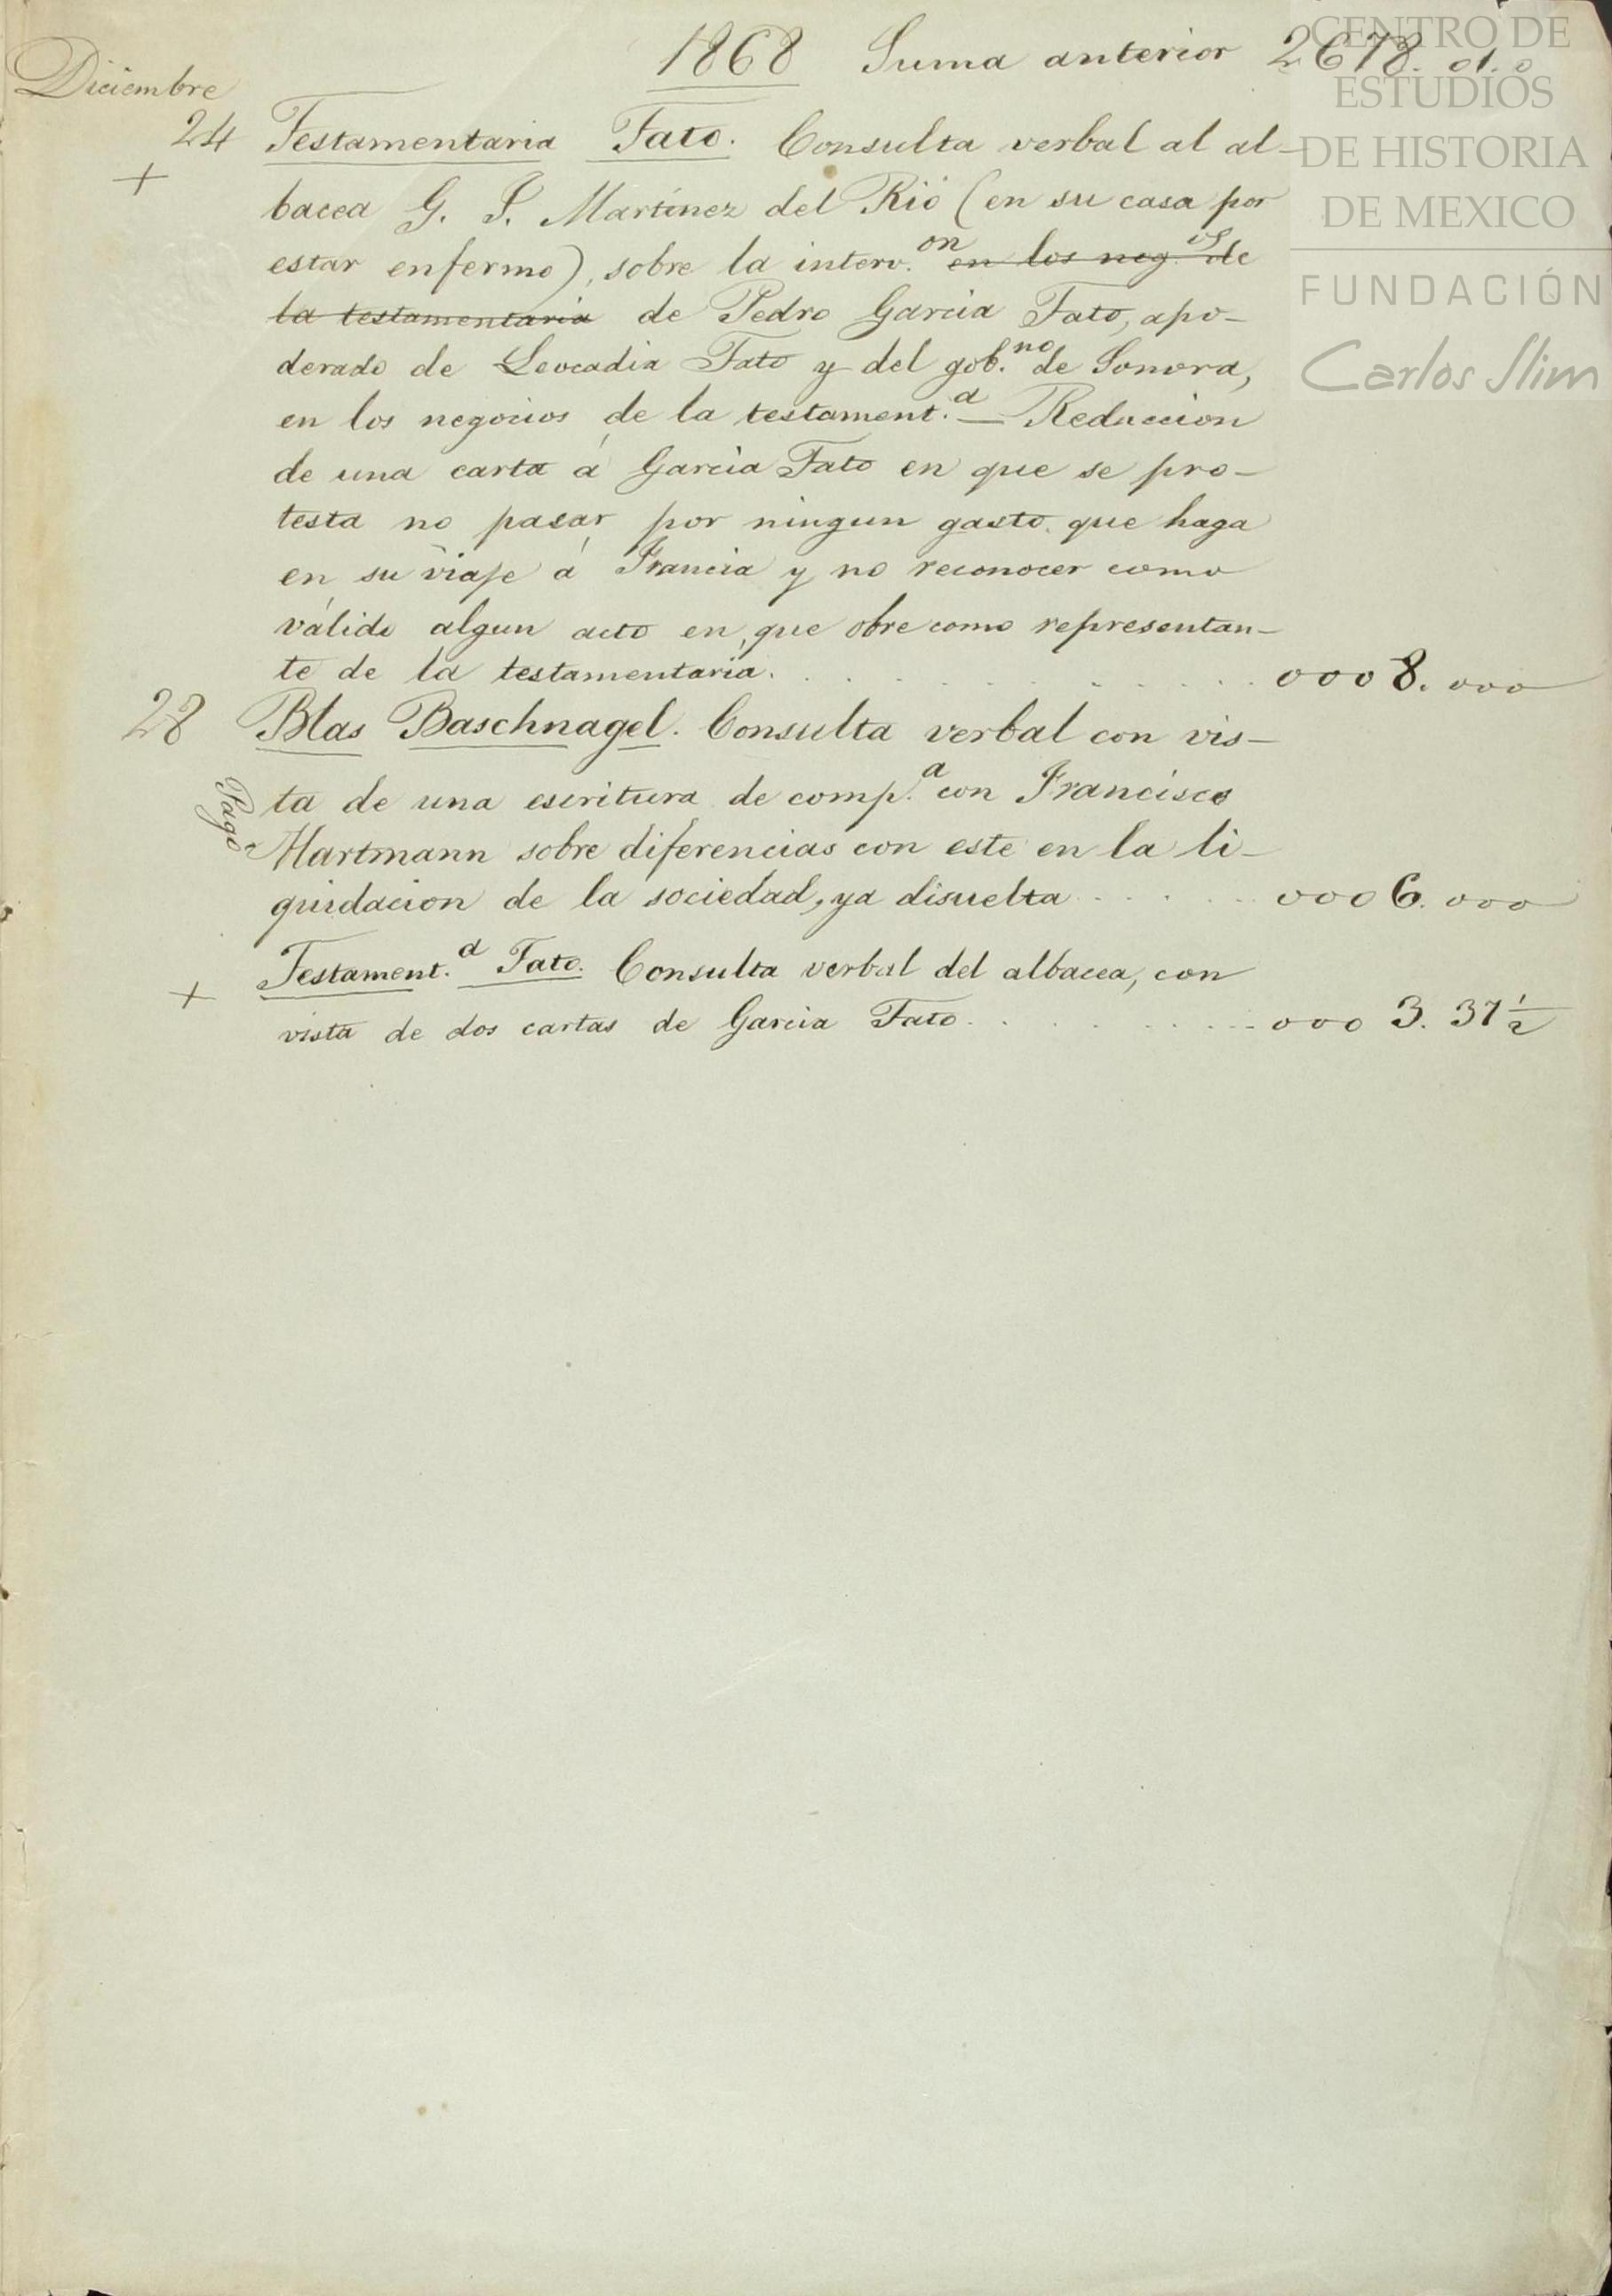 1868 Suma anterior 2678. 01. 0
Diciembre
24 Testamentaria Tato. Consulta verbal al al-
+ bacea G. P. Martinez del Rio (en su casa por
estar enfermo), sobre la interv.on en los neg.os de
la testamentaria de Pedro Garcia Tato, apo-
derado de Leocadia Tato y del gob.no de Sonora,
en los negocios de la testament.a — Reduccion
de una carta á Garcia Tato en que se pro-
testa no pasar por ningun gasto que haga
en su viaje á Francia y no reconocer como
válido algun acto en que obre como representan-
te de la testamentaria. . . . . . . . . . . 0008. 000
28 Blas Baschnagel. Consulta verbal con vis-
Pagó
ta de una escritura de comp.a con Francisco
Hartmann sobre diferencias con este en la li-
quidacion de la sociedad, ya disuelta . . . . . 0006. 000
Testament.a Tato. Consulta verbal del albacea, con
+ vista de dos cartas de Garcia Tato . . . . . . . 000 3. 37 1/2
CENTRO DE
ESTUDIOS
DE HISTORIA
DE MEXICO
FUNDACIÓN
Carlos Slim